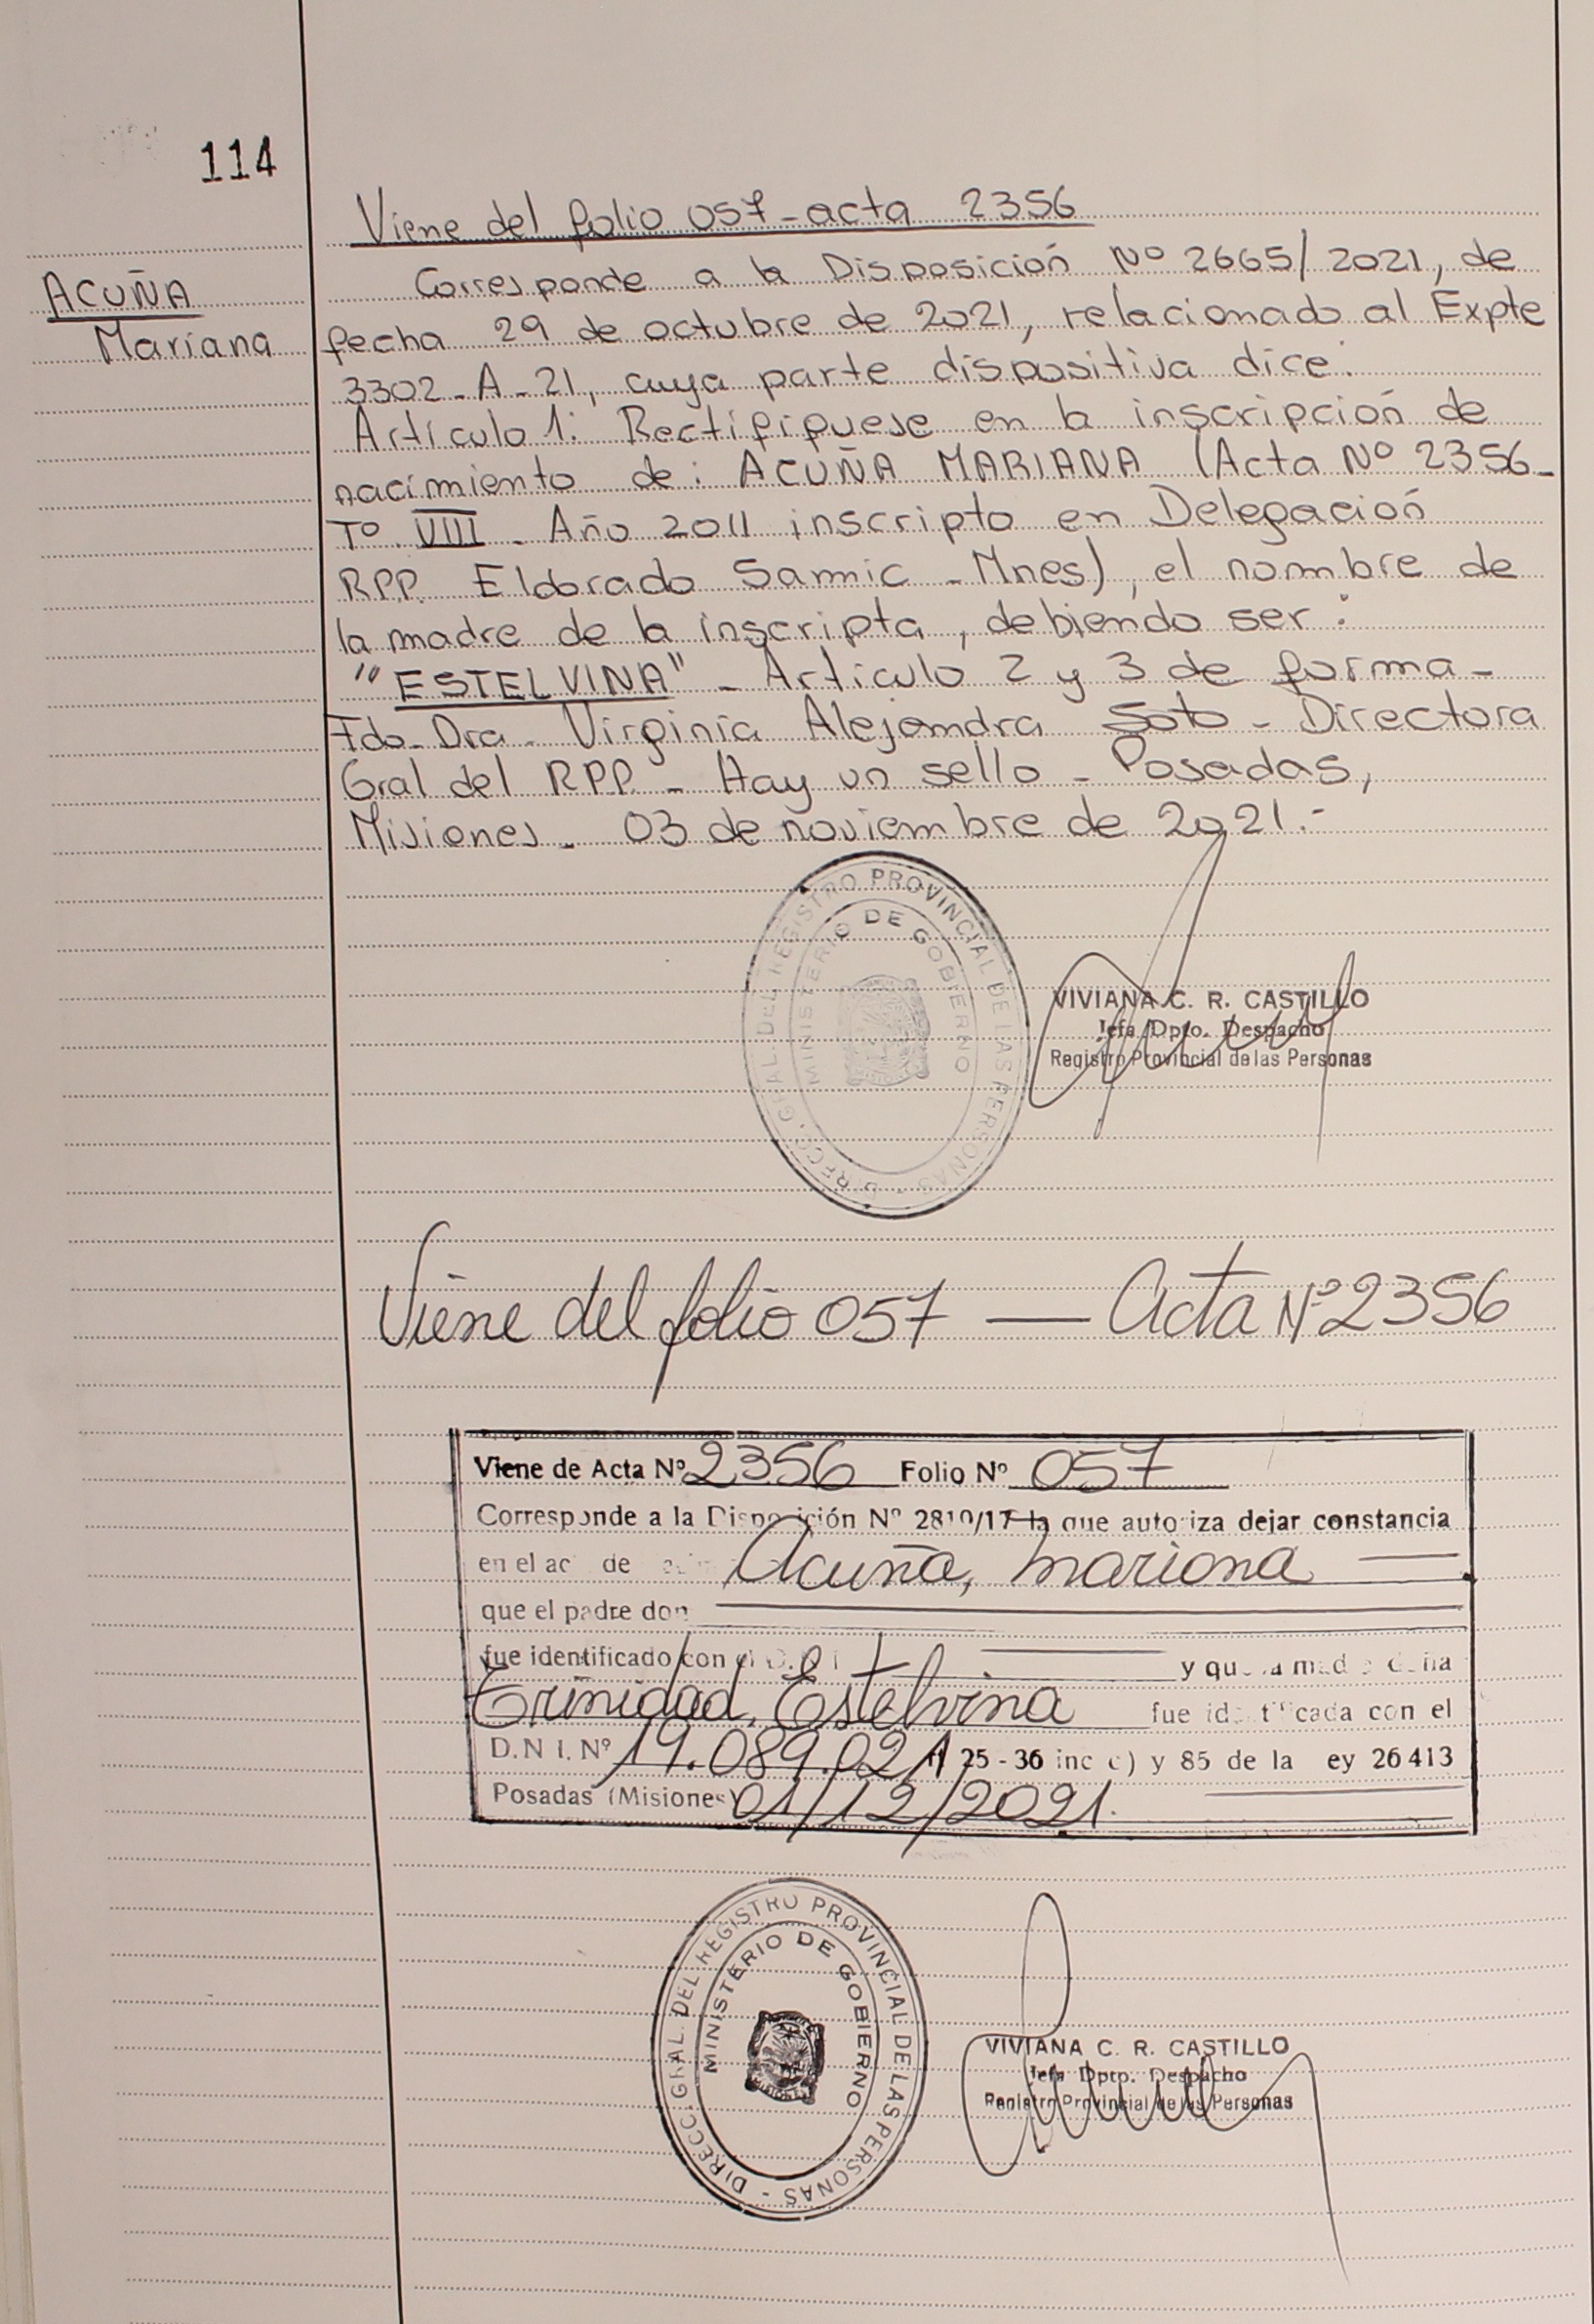 114
Viene del folio 057 - acta 2356
ACUÑA
Mariana
Corresponde a la Disposición Nº 2665/2021, de
fecha 29 de octubre de 2021, relacionado al Expte
3302-A-21, cuya parte dispositiva dice:
Artículo 1: Rectifíquese en la inscripción de
nacimiento de: ACUÑA MARIANA (Acta Nº 2356-
Tº VIII - Año 2011 inscripto en Delegación
RPP. Eldorado Samic - Mnes), el nombre de
la madre de la inscripta, debiendo ser:
"ESTELVINA" - Artículo 2 y 3 de forma -
Fdo- Dra - Virginia Alejandra Soto - Directora
Gral del RPP. - Hay un sello - Posadas,
Misiones - 03 de noviembre de 2021.-
DIRECC. GRAL. DEL REGISTRO PROVINCIAL DE LAS PERSONAS -
MINISTERIO DE GOBIERNO
VIVIANA C. R. CASTILLO
Jefa Dpto. Despacho
Registro Provincial de las Personas
Viene del folio 057 — Acta Nº 2356
Viene de Acta Nº 2356 Folio Nº 057
Corresponde a la Disposición Nº 2810/17 la que autoriza dejar constancia
en el ac de Acuña, Mariana —
que el padre don —
fue identificado con el D. I — y que la madre doña
Trinidad, Estelvina fue identificada con el
D.N.I. Nº 19.089.021 25 - 36 inc c) y 85 de la ey 26413
Posadas (Misiones) 01/12/2021.
DIRECC. GRAL. DEL REGISTRO PROVINCIAL DE LAS PERSONAS -
MINISTERIO DE GOBIERNO
MISIONES
VIVIANA C. R. CASTILLO
Jefa Dpto. Despacho
Registro Provincial de las Personas